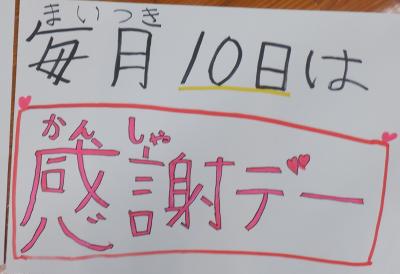 まいつき
毎月10日は
かんしゃ
感謝デー